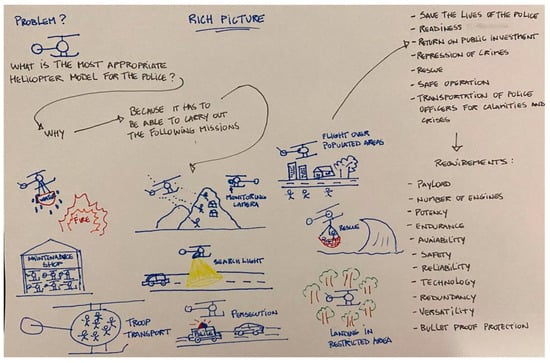 PROBLEM?
RICH PICTURE
WHAT IS THE MOST APPROPRIATE
HELICOPTER MODEL FOR THE POLICE?
WHY
BECAUSE IT HAS TO
BE ABLE TO CARRY OUT
THE FOLLOWING MISSIONS
- SAVE THE LIVES OF THE POLICE
- READINESS
- RETURN ON PUBLIC INVESTMENT
- REPRESSION OF CRIMES
- RESCUE
- SAFE OPERATION
- TRANSPORTATION OF POLICE
OFFICERS FOR CALAMITIES AND
CRISES
WATER
FIRE
MONITORING
CAMERA
FLIGHT OVER
POPULATED AREAS
MAINTENANCE
SHOP
SEARCH LIGHT
RESCUE
TROOP
TRANSPORT
PERSECUTION
POLICE
LANDING IN
RESTRICTED AREA
REQUIREMENTS:
- PAYLOAD
- NUMBER OF ENGINES
- POTENCY
- ENDURANCE
- AVAIABILITY
- SAFETY
- RELIABILITY
- TECHNOLOGY
- REDUNDANCY
- VERSATILITY
- BULLET PROOF PROTECTION